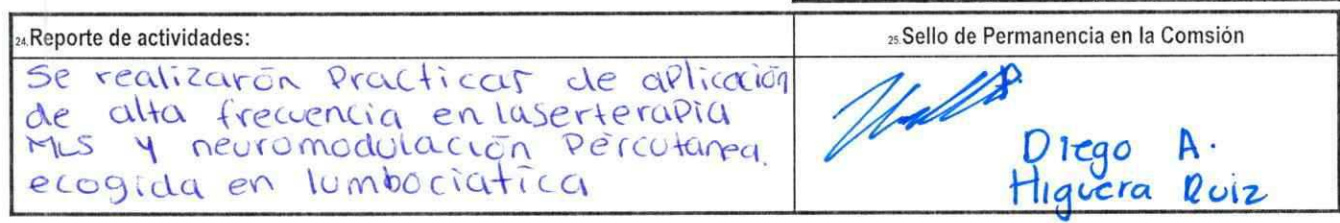 24.Reporte de actividades:
25.Sello de Permanencia en la Comsión
Se realizarōn Practicas de aPlicación
de alta frecuencia en laserterapia
MLS y neuromodulación Pércutanea.
ecogida en lumbociatíca
Diego A.
Higuera Ruiz